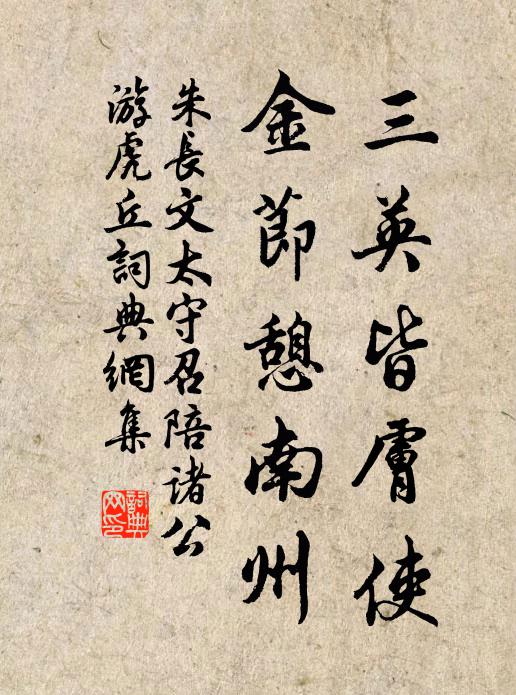 三英皆膚使
金節憩南州
朱長文太守召陪諸公
游虎丘詞典網集
詞典网印